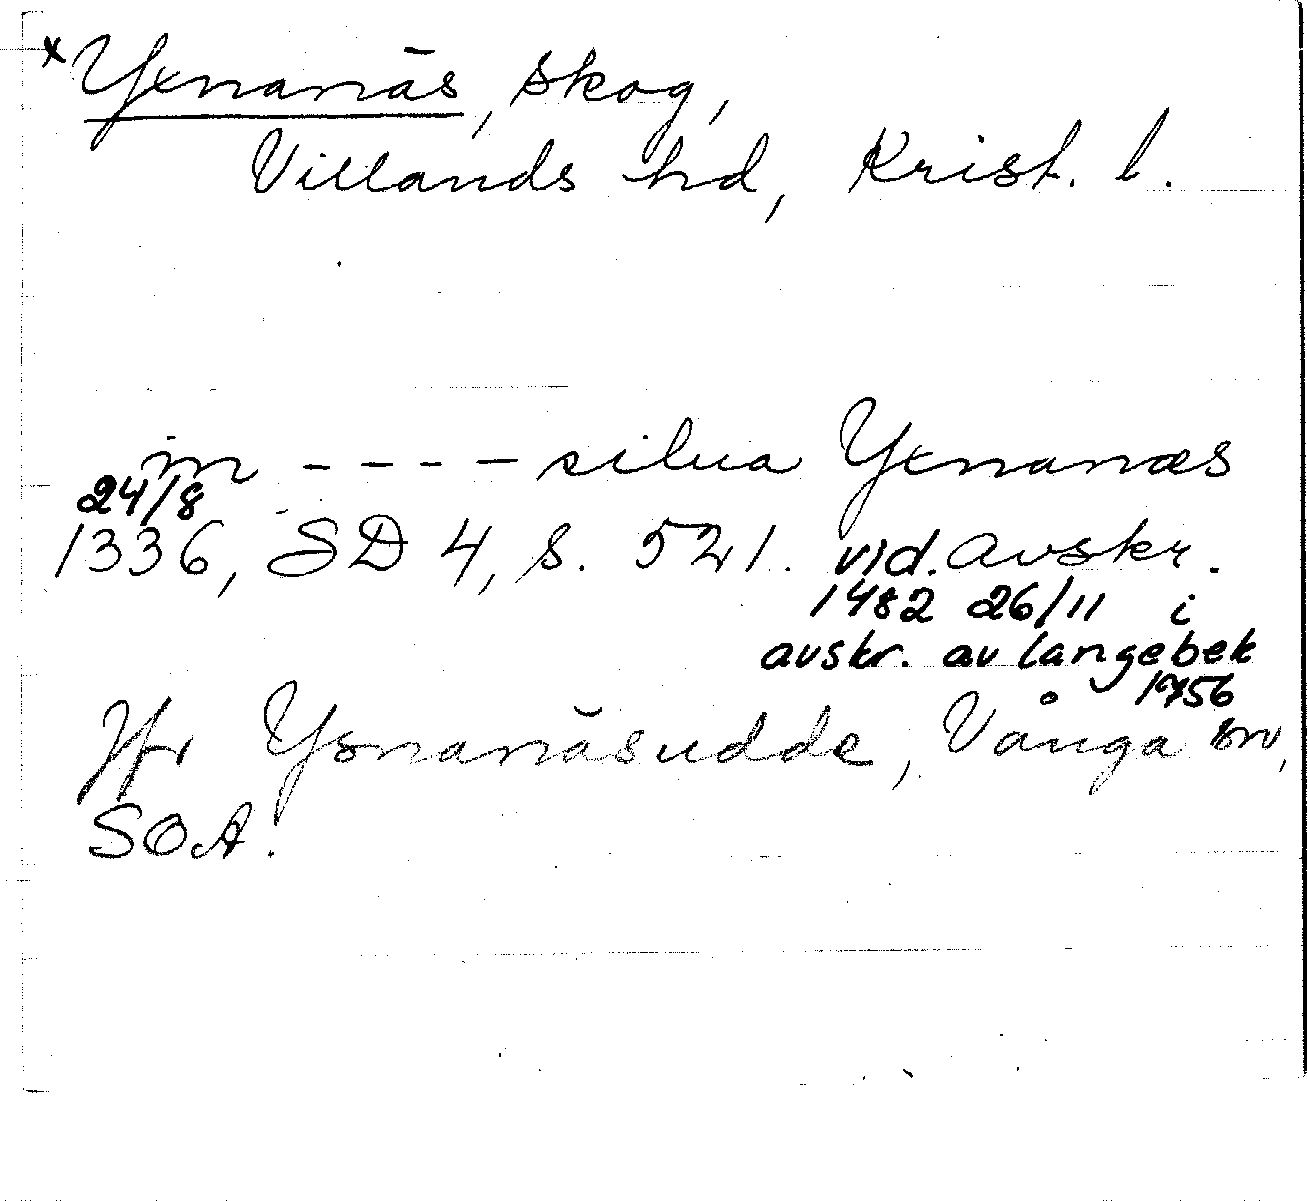 x Yxnanäs, skog,
Villands hd, Krist. l.
in ---- silua Yxnanæs
24/8
1336, SD 4, s. 521. vid. avskr.
1482 26/11 i
avskr. av langebek
1756
Jfr Ysnanäsudde, Vånga sn,
SOA.